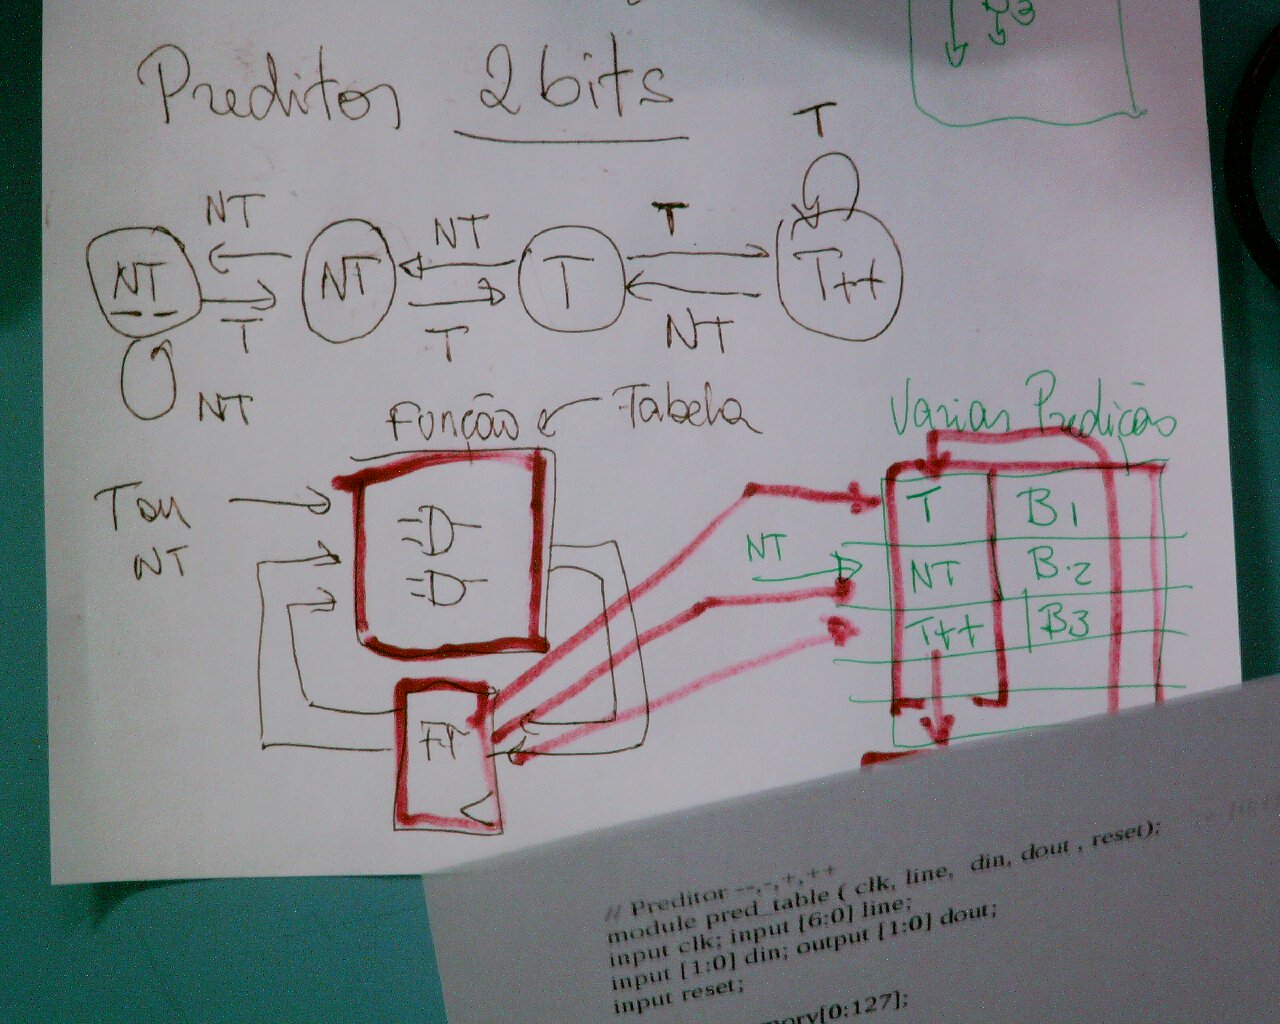 Preditor 2 bits
T
NT NT T
NT NT T T++
T T NT
NT
Função Tabela
Varias Predição
T ou
NT
T B1
NT
NT B2
T++ B3
FF
// Preditor --,-,+,++
module pred_table ( clk, line, din, dout , reset);
input clk; input [6:0] line;
input [1:0] din; output [1:0] dout;
input reset;
mory[0:127];